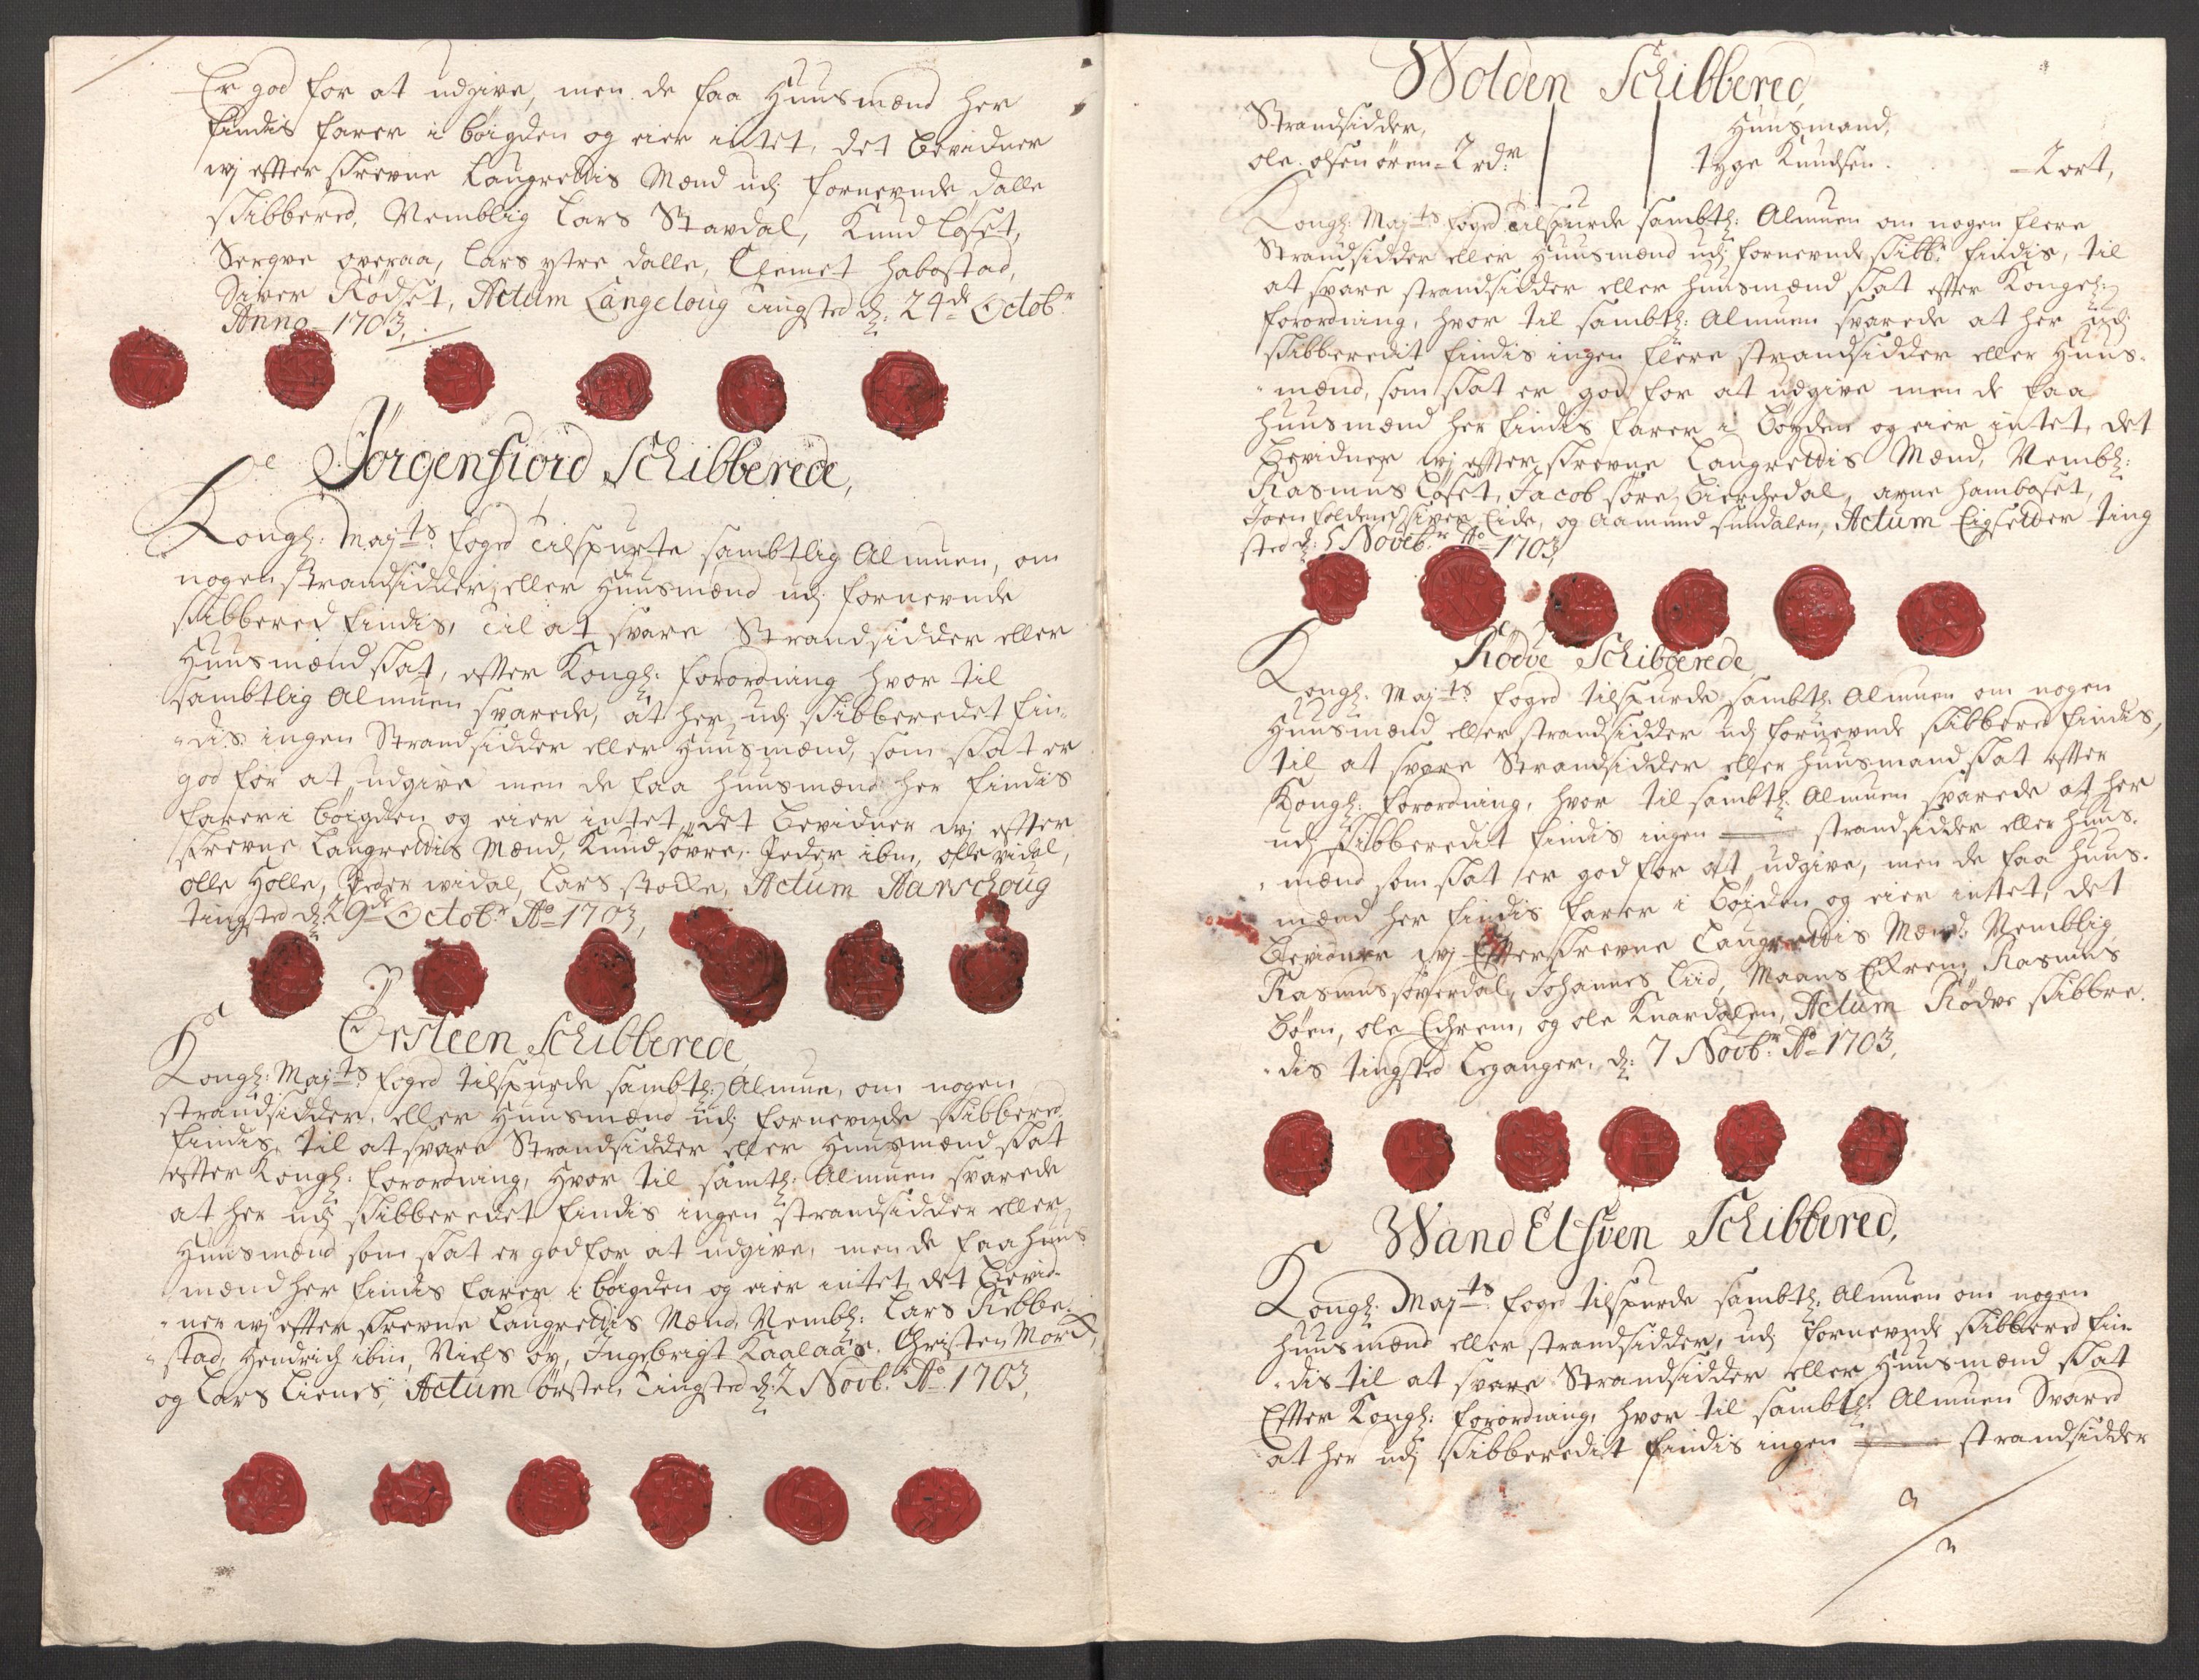 Er god for at udgive, men de faa Huusmænd her
findis farer i bøigden og eier intet, det bevidner
wj effterskrevne Laugrettis Mænd udj fornevnde Dalls
skibbered, Nemblig Lars Stavdal, Knud Løset,
Sergve overaa, Lars ystre Dalle, Clemet Habostad,
Siver Rödset, Actum Langeloug Tingsted d: 24de Octobr
Anno 1703,
Jörgenfiord Schibberede,
Kongl: Mayts foged Tilspurte sambtlig Almuen, om
nogen Strandsidder eller Huusmænd udj fornevnde
skibbered findis, Til at svare Strandsidder eller
Huusmænd skat, effter Kongl: forordning hvor til
sambtlig Almuen svarede, at her udj skibberedet fin-
-dis ingen Strandsidder eller Huusmænd, som skat er
god for at udgive men de faa huusmænd her findis
farer i bøigden og eier intet, det bevidner wj effter
skrevne Laugrettis Mænd, Knud søvre, Peder ibm, olle vidal,
olle Holle, Peder widal, Lars Stocke, Actum Aarschoug
tingsted d: 29de Octobr Ao 1703,
Örsteen Schibberede
Kongl: Mayts foged tilspurde sambtl: Almue, om nogen
strandsidder, eller Huusmænd udj fornevnde skibbered
findis, til at svare Strandsidder eller Huusmænd skat
effter Kongl: forordning, Hvor til samtl: Almuen svarede
at her udj skibberedet findis ingen strandsidder eller
Huusmænd som skat er god for at udgive, men de faa huus
mænd her findis farer i bøigden og eier intet, det bevid-
-ner wj effter skrevne Laugrettis Mænd, Nembl: Lars Rebbe-
-stad, Hendrich ibm, Niels øy, Ingebrigt Kaalaas, Christen Mork,
og Lars Lienes, Actum örsten Tingsted d: 2 Novb: Ao 1703,
Wolden Schibbered,
Strandsidder, Huusmand,
ole olsen ören - 2 rdr tyge Knudsen - 2 ort,
Kongl: Mayts foged tilspurde sambtl: Almuen om nogen flere
Strandsidder eller Huusmænd udj fornevnde skibbr findis, til
at svare strandsidder eller huusmænd skat effter Kongel:
forordning, hvor til sambtl: Almuen svarede at her udj
skibberedit findis ingen flere strandsidder eller Huus-
-mænd, som skat er god for at udgive men de faa
huusmænd her findis farer i bøyden og eier intet, det
bevidner wj effterskrevne Laugrettis Mænd, Nembl:
Rasmus Löset, Jacob söre, Bierchedal, arne hamboset,
Joen foldenes, siver Eide, og Aamund sundalen, Actum Eigsetter ting
sted d: 5 Novbr Ao 1703,
Rödve Schibberede
Kongl: Mayts foged tilspurde sambtl: Almuen om nogen
Huusmænd eller strandsidder udj fornevnde skibbered findis,
til at svare Strandsidder eller huusmand skat effter
Kongl: forordning, hvor til sambtl: Almuen svarede at her
udj skibberedit findis ingen strandsidder eller huus-
-mænd som skat er god for at udgive, men de faa huus-
mænd her findis farer i bøiden og eier intet, det
bevidner wj Effterskrevne Laugrettis Mænd Nemblig
Rasmus söverdal, Johannes Liid, Maans Eckrem, Rasmus
böen, ole Echrem, og ole Knardalen, Actum Rödve skibbre-
-dis tingsted Leganger, d: 7 Novbr: Ao 1703,
Wand Elfven Schibbered,
Kongl: Mayts foged tilspurde sambtl: Almuen om nogen
huusmænd eller strandsidder, udj fornevnde skibbered fin-
-dis til at svare Strandsidder eller Huusmænd skat
Effter Kongl: forordning, hvor til sambtl: Almuen Svared
at her udj skibberedit findis ingen strandsidder